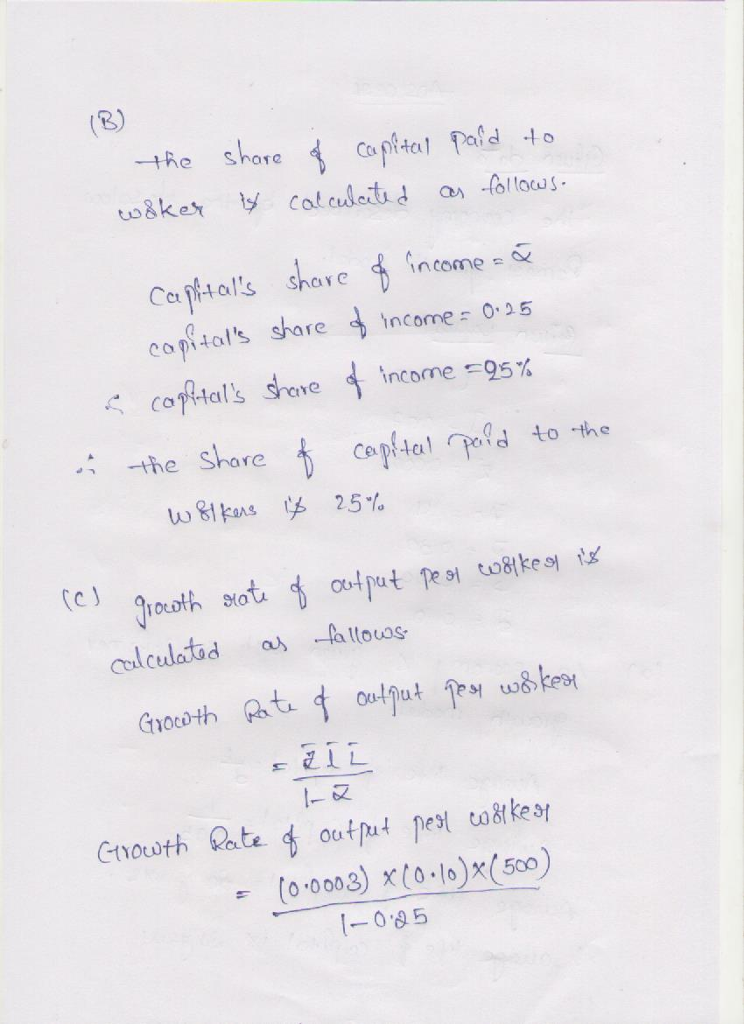 (B)
the share of capital paid to
worker is calculated as follows.
Capital's share of income = ᾱ
capital's share of income = 0.25
capital's share of income = 25%
∴ the share of capital paid to the
workers is 25%
(C) growth rate of output per worker is
calculated as fallows
Growth Rate of output per worker
= z̄ l̄ L̄
1-ᾱ
Growth Rate of output per worker
= (0.0003) x (0.10) x (500)
1-0.25